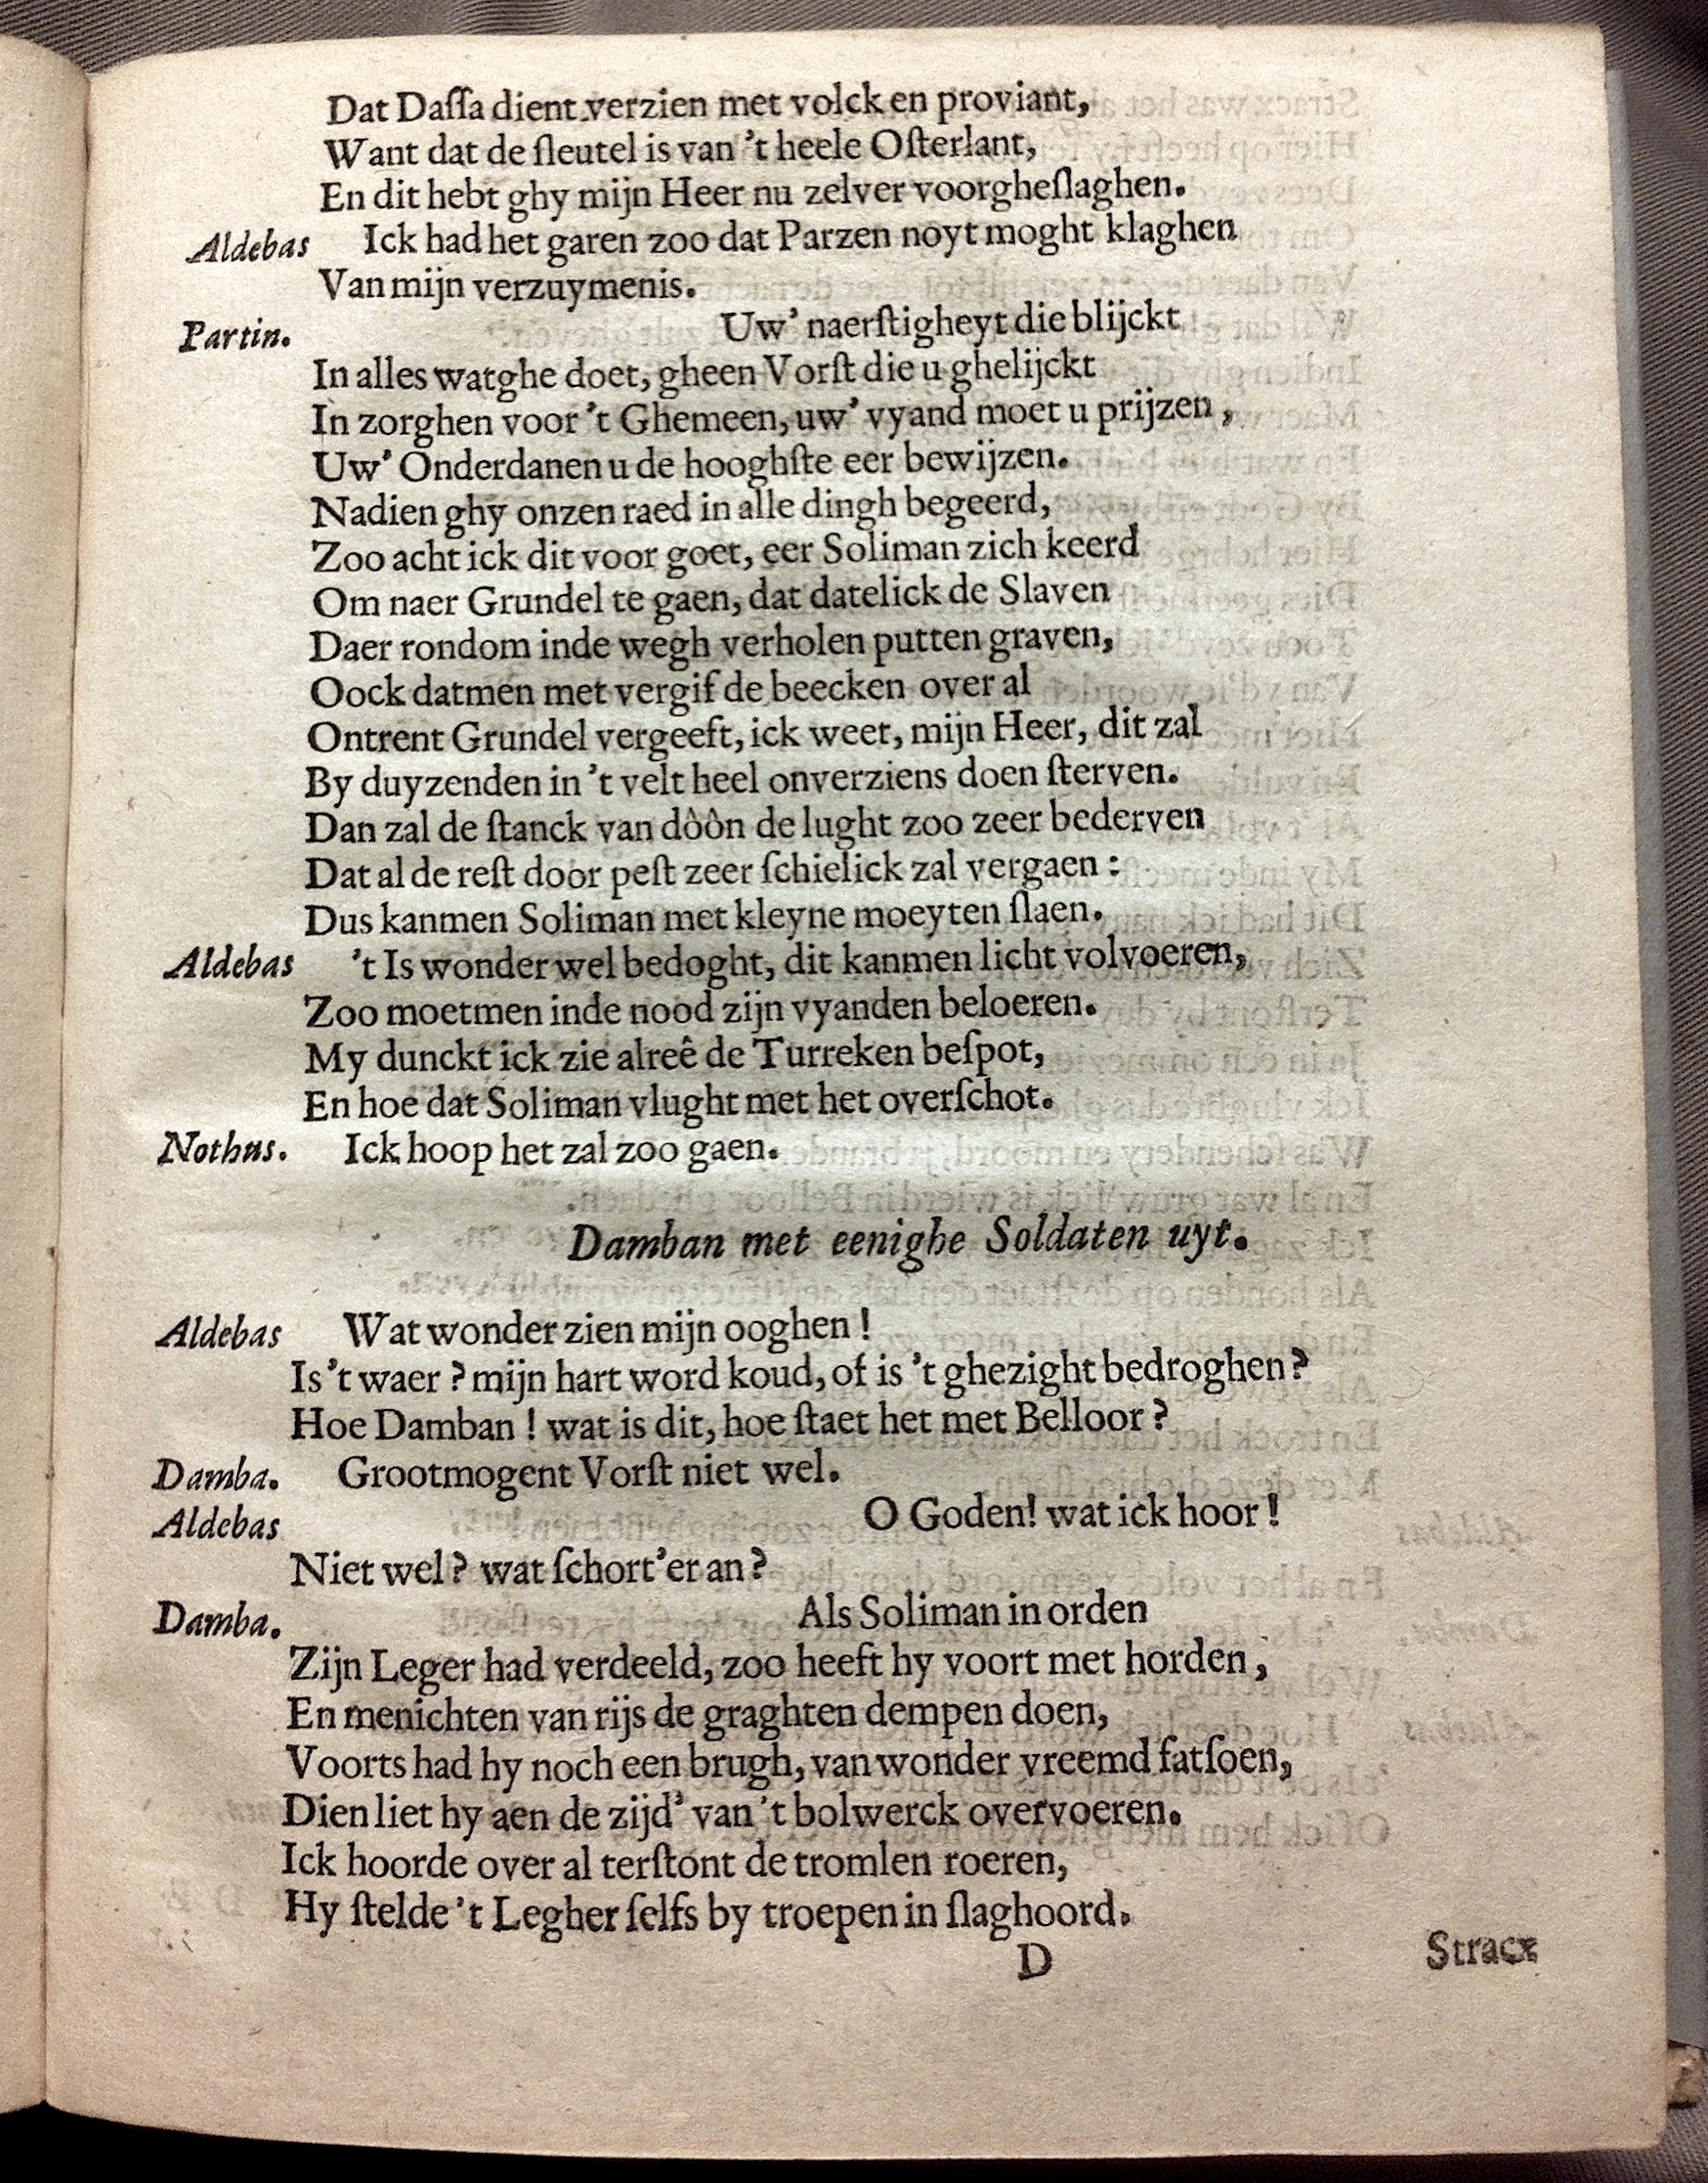 Dat Daſſa dient verzien met volck en proviant,
Want dat de ſleutel is van 't heele Oſterlant,
En dit hebt ghy mijn Heer nu zelver voorgheſlaghen.
Aldebas Ick had het garen zoo dat Parzen noyt moght klaghen
Van mijn verzuymenis.
Partin. Uw' naerſtigheyt die blijckt
In alles watghe doet, gheen Vorſt die u ghelijckt
In zorghen voor 't Ghemeen, uw' vyand moet u prijzen,
Uw' Onderdanen u de hooghſte eer bewijzen.
Nadien ghy onzen raed in alle dingh begeerd,
Zoo acht ick dit voor goet, eer Soliman zich keerd
Om naer Grundel te gaen, dat datelick de Slaven
Daer rondom inde wegh verholen putten graven,
Oock datmen met vergif de beecken over al
Ontrent Grundel vergeeft, ick weet, mijn Heer, dit zal
By duyzenden in 't velt heel onverziens doen ſterven.
Dan zal de ſtanck van dôôn de lught zoo zeer bederven
Dat al de reſt door peſt zeer ſchielick zal vergaen:
Dus kanmen Soliman met kleyne moeyten ſlaen.
Aldebas 't Is wonder wel bedoght, dit kanmen licht volvoeren,
Zoo moetmen inde nood zijn vyanden beloeren.
My dunckt ick zie alreê de Turreken beſpot,
En hoe dat Soliman vlught met het overſchot.
Nothus. Ick hoop het zal zoo gaen.
Damban met eenighe Soldaten uyt.
Aldebas Wat wonder zien mijn ooghen!
Is 't waer? mijn hart word koud, of is 't ghezight bedroghen?
Hoe Damban! wat is dit, hoe ſtaet het met Belloor?
Damba. Grootmogent Vorſt niet wel.
Aldebas O Goden! wat ick hoor!
Niet wel? wat ſchort'er an?
Damba. Als Soliman in orden
Zijn Leger had verdeeld, zoo heeft hy voort met horden,
En menichten van rijs de graghten dempen doen,
Voorts had hy noch een brugh, van wonder vreemd fatſoen,
Dien liet hy aen de zijd' van 't bolwerck overvoeren.
Ick hoorde over al terſtont de tromlen roeren,
Hy ſtelde 't Legher ſelfs by troepen in ſlaghoord.
D Stracx